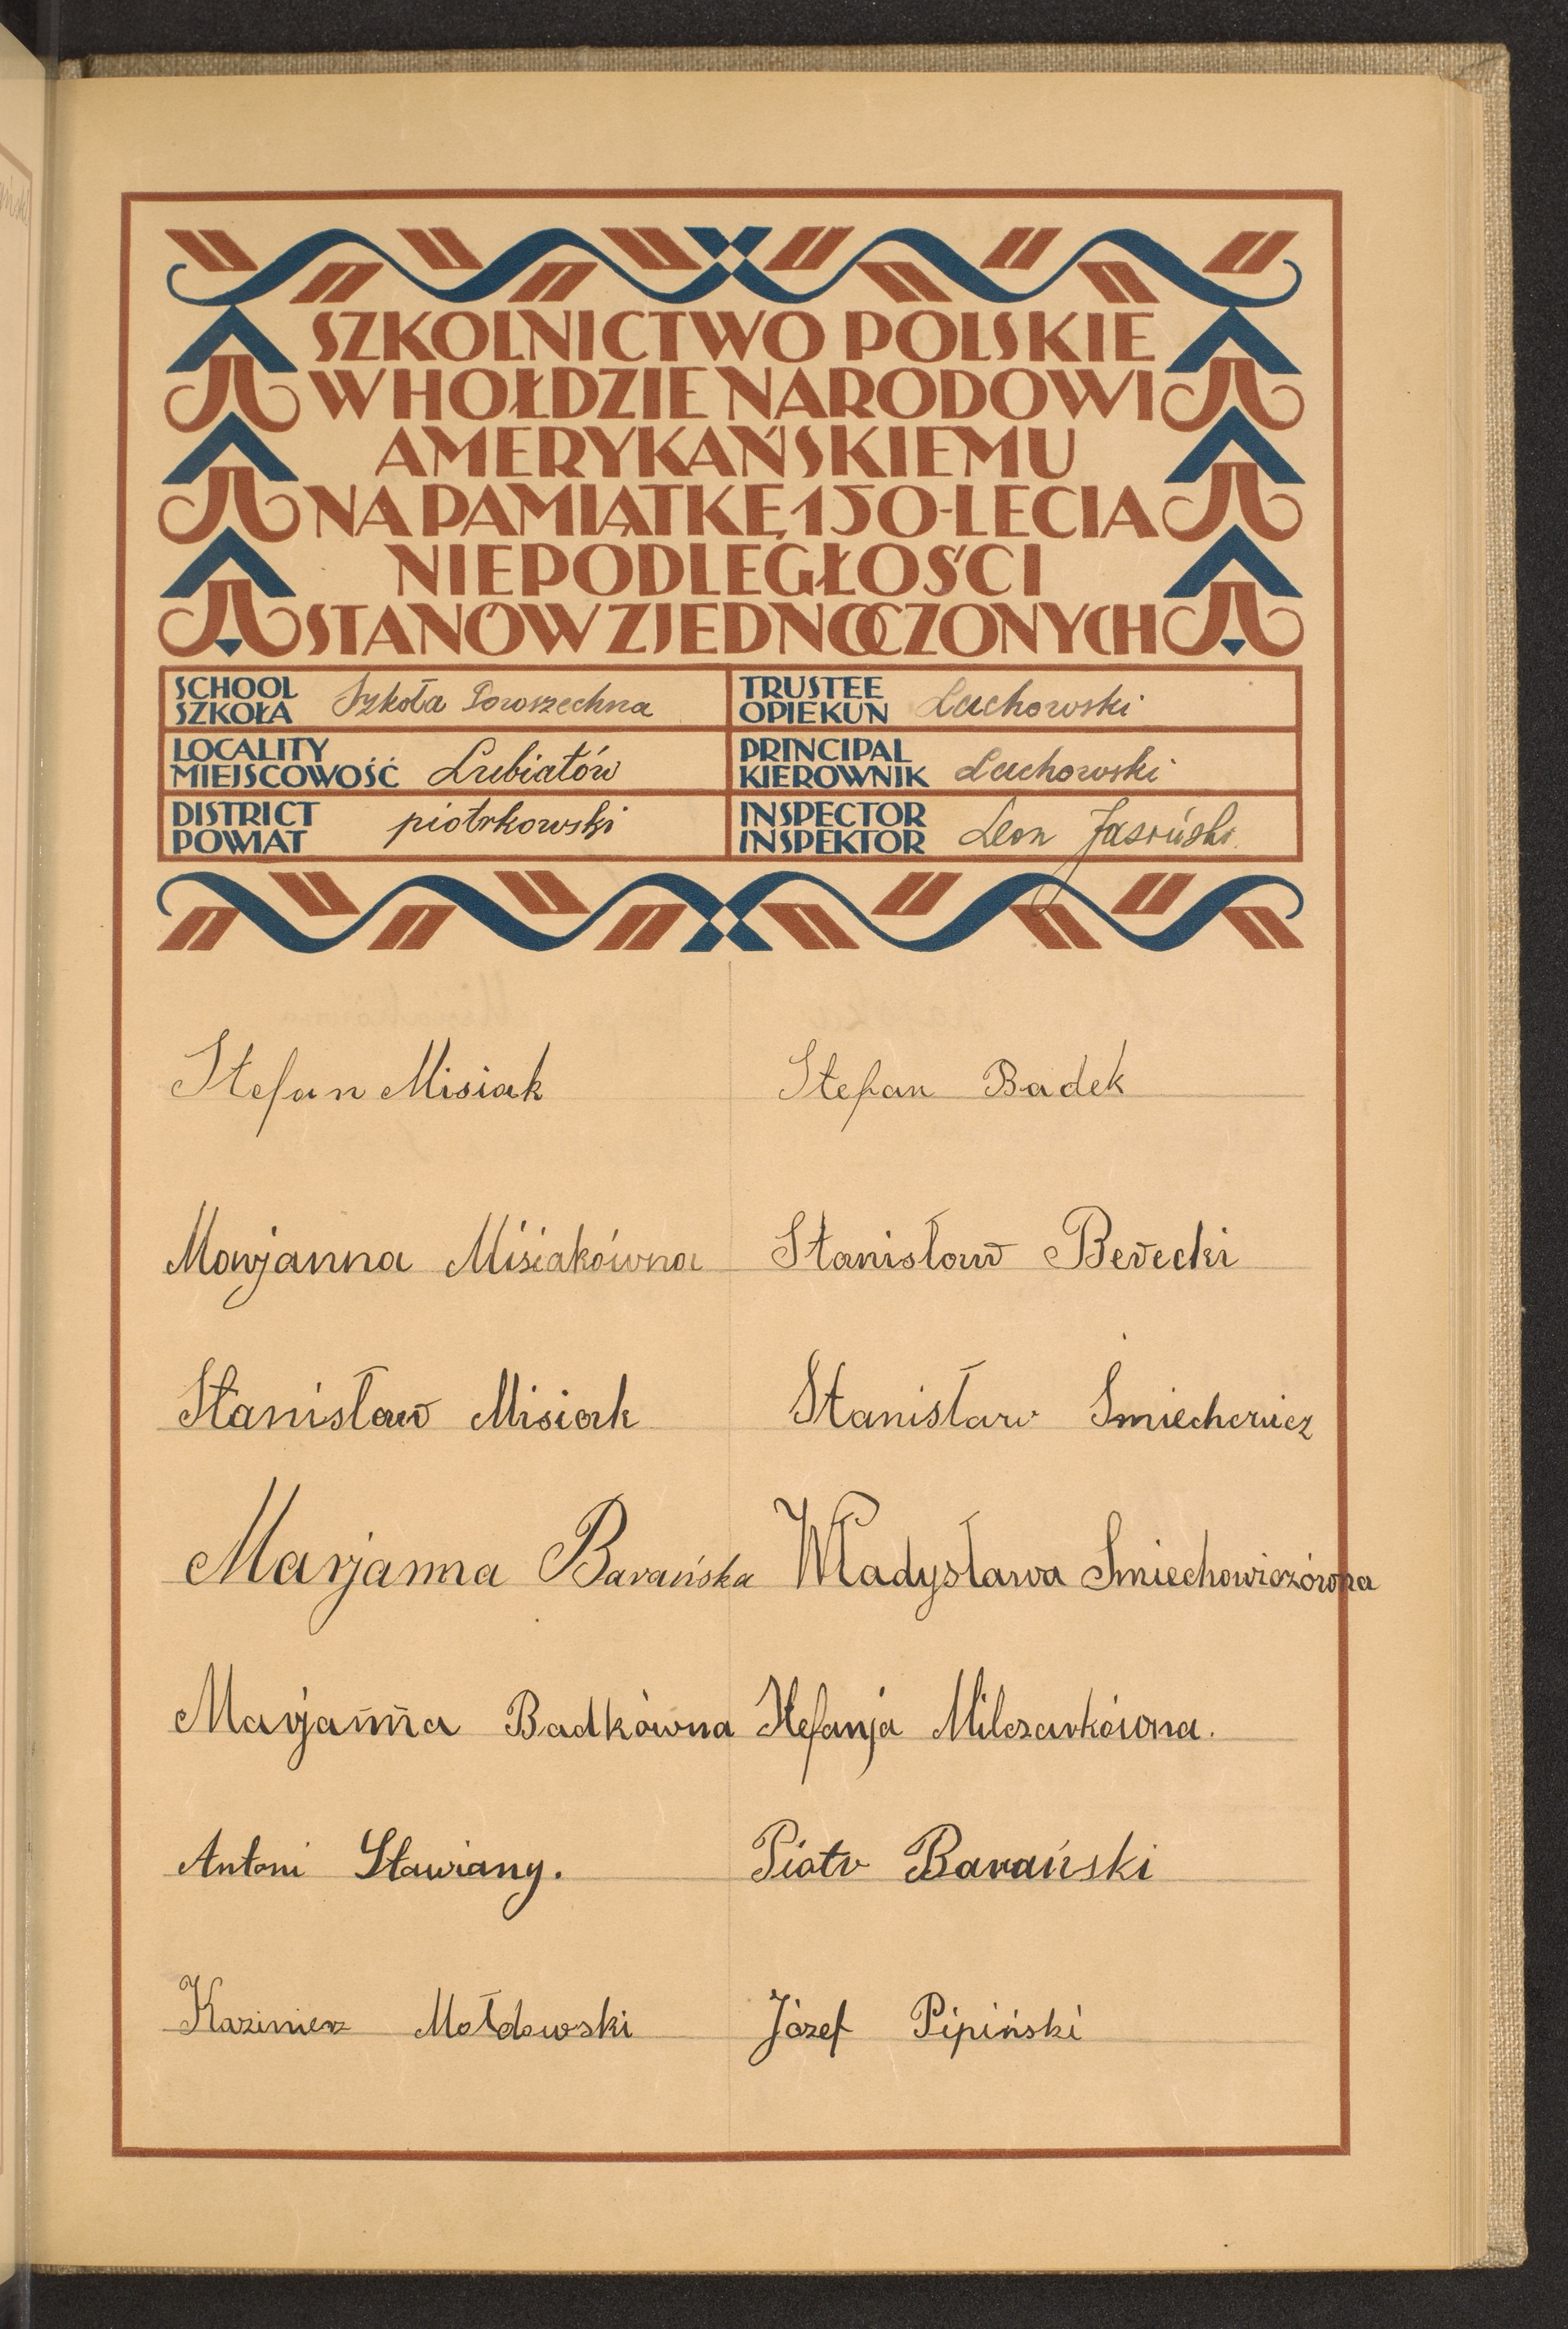 SZKOLNICTWO POLSKIE
W HOŁDZIE NARODOWI
AMERYKAŃSKIEMU
NA PAMIĄTKĘ 150-LECIA
NIEPODLEGŁOŚCI
STANÓW ZJEDNOCZONYCH
SCHOOL
SZKOŁA Szkoła Powszechna
TRUSTEE
OPIEKUN Lachowski
LOCALITY
MIEJSCOWOŚĆ Lubiatów
PRINCIPAL
KIEROWNIK Lachowski
DISTRICT
POWIAT piotrkowski
INSPECTOR
INSPEKTOR Leon Jasiński
Stefan Misiak
Stefan Badek
Marjanna Misiakówna
Stanisław Berecki
Stanisław Misiak
Stanisław Śmiechowicz
Marjanna Barańska
Władysława Smiechowiczówna
Marjanna Badkówna
Stefanja Milczarkówna.
Antoni Sławiany.
Piotr Barański
Kazimierz Mołdawski
Józef Pipiński